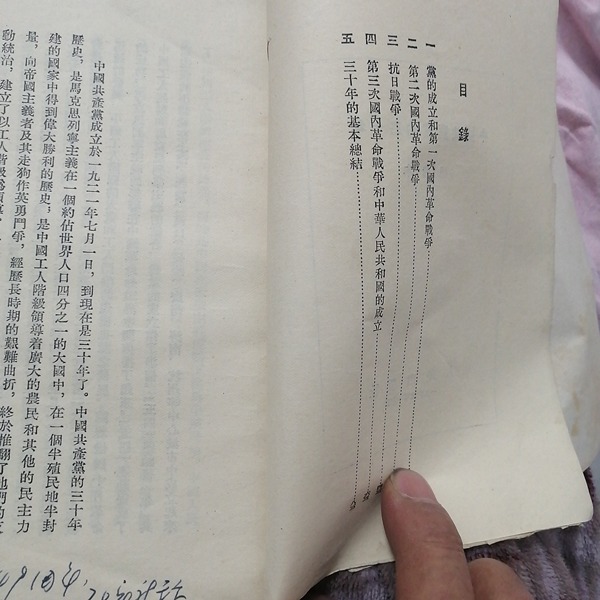 目錄
一 黨的成立和第一次國內革命戰爭
二 第二次國內革命戰爭
三 抗日戰爭
四 第三次國內革命戰爭和中華人民共和國的成立
五 三十年的基本總結
中國共產黨成立於一九二一年七月一日，到現在是三十年了。中國共產黨的三十年
歷史，是馬克思列寧主義在一個約佔世界人口四分之一的大國中，在一個半殖民地半封
建的國家中得到偉大勝利的歷史，是中國工人階級領導着廣大的農民和其他的民主力
量，向帝國主義者及其走狗作英勇鬥爭，經歷長時期的艱難曲折，終於推翻了他們的反
動統治，建立了以工人階級爲領